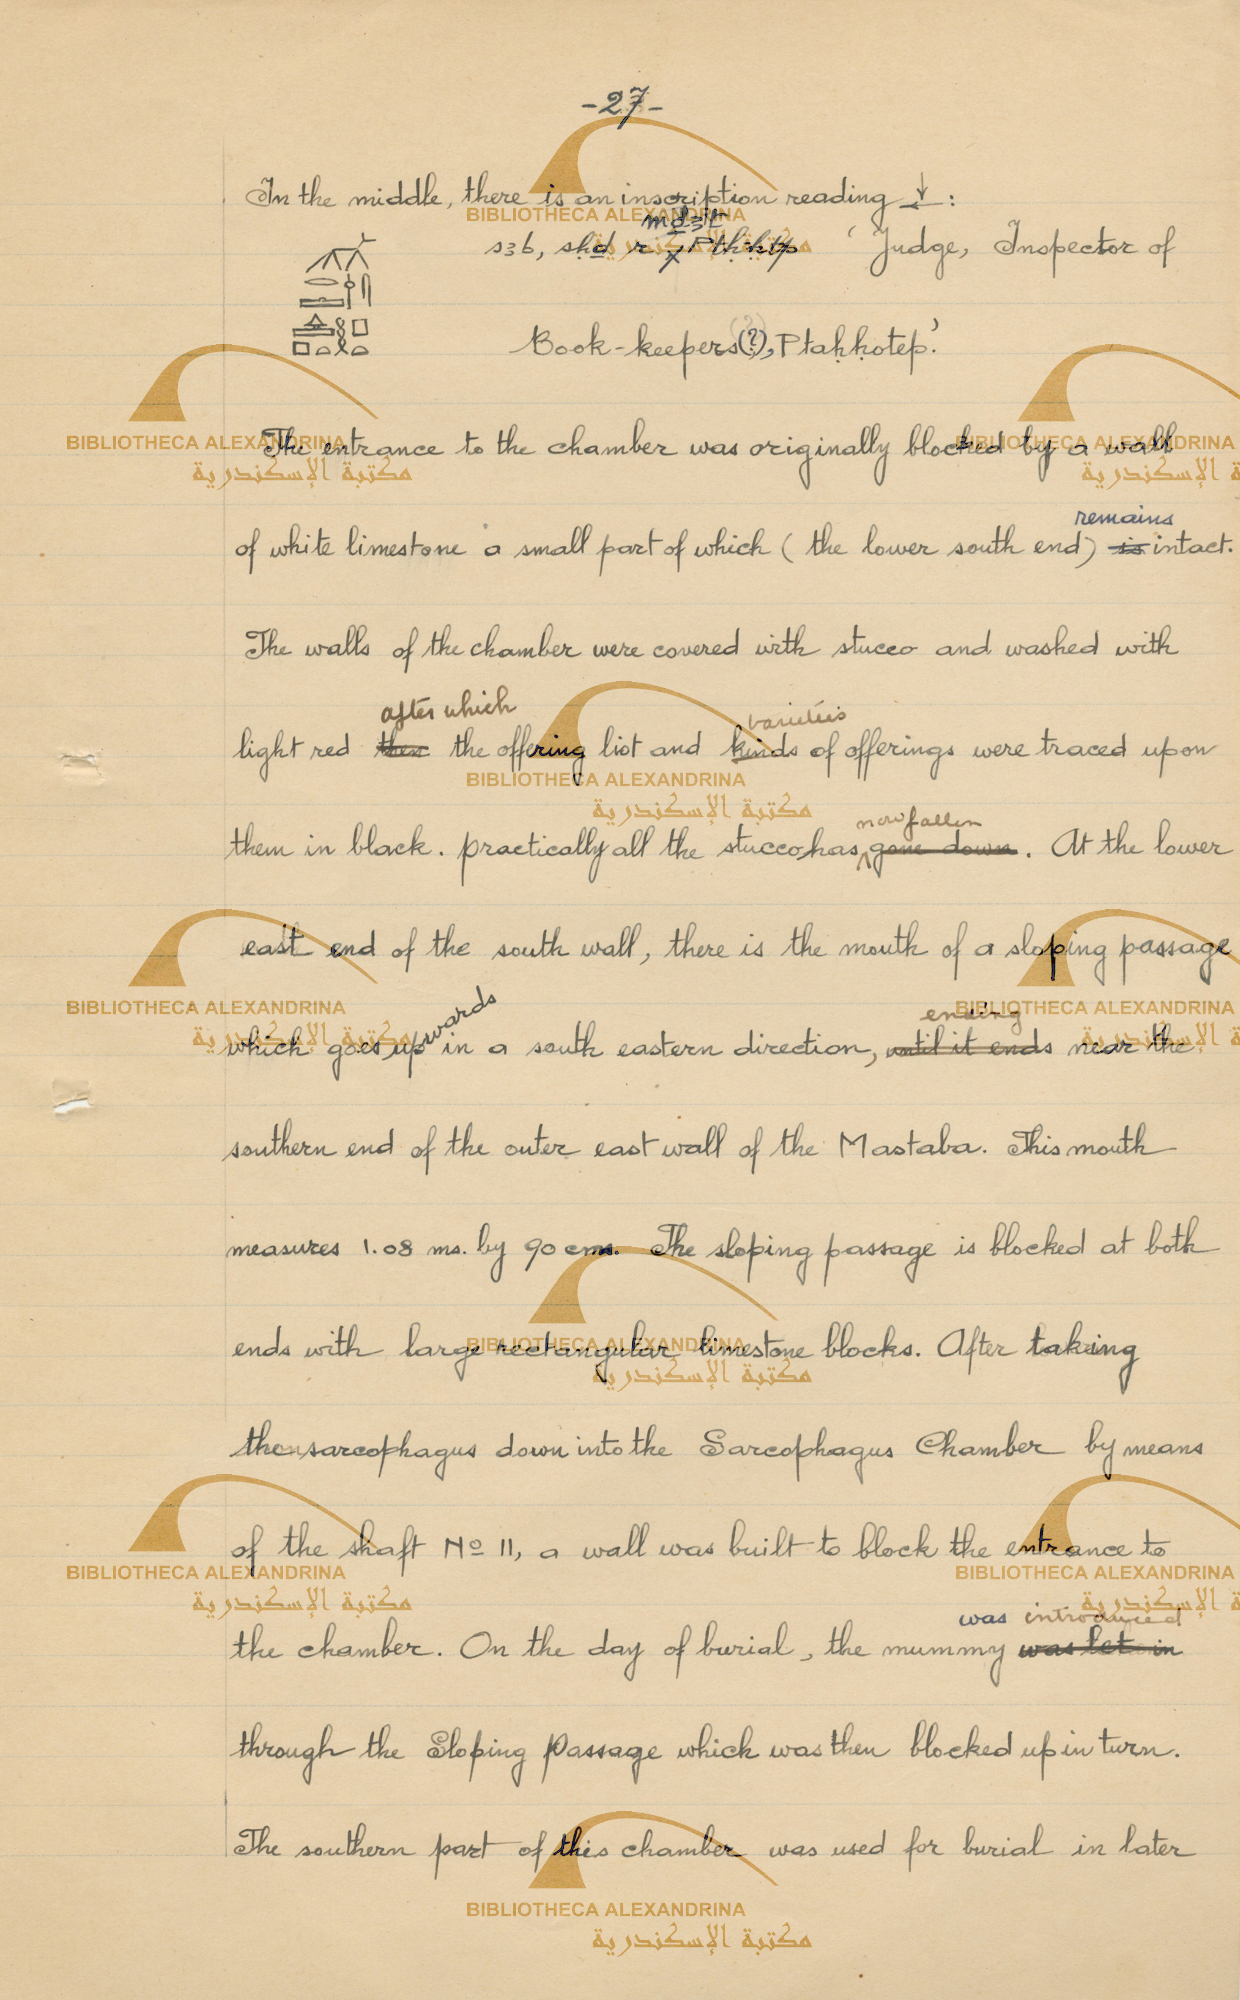 -27-
In the middle, there is an inscription reading ↓← :
mḏꜣt
sꜣb, sḥḏ r x Ptḥḥtp ‘Judge, Inspector of
Book-keepers(?), Ptaḥḥotep.’
The entrance to the chamber was originally blocked by a wall
remains
of white limestone a small part of which ( the lower south end) is intact.
The walls of the chamber were covered with stucco and washed with
after which varieties
light red then the offering list and kinds of offerings were traced upon
now fallen
them in black. practically all the stucco, has gone down. At the lower
east end of the south wall, there is the mouth of a sloping passage
ending
which goes upwards in a south eastern direction, until it ends near the
southern end of the outer east wall of the Mastaba. This mouth
measures 1.08 ms. by 90 cms. The sloping passage is blocked at both
ends with large rectangular limestone blocks. After taking
the sarcophagus down into the Sarcophagus Chamber by means
of the shaft No 11, a wall was built to block the entrance to
was introduced
the chamber. On the day of burial, the mummy was let in
through the Sloping Passage which was then blocked up in turn.
The southern part of this chamber was used for burial in later
BIBLIOTHECA ALEXANDRINA
مكتبة الإسكندرية